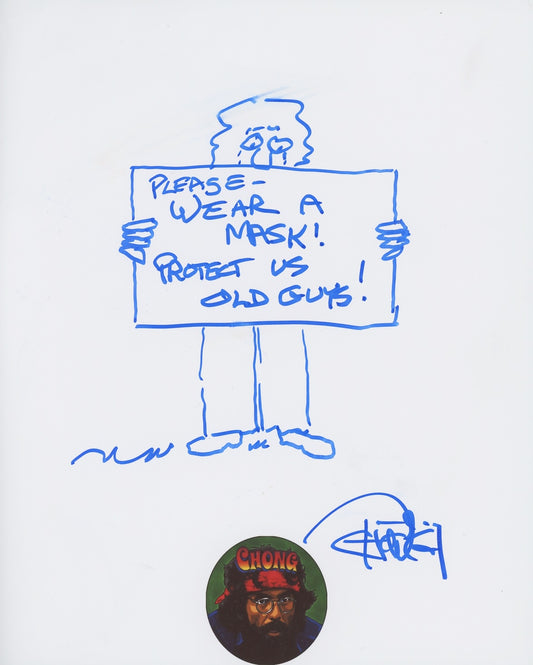 PLEASE-
WEAR A
MASK!
PROTECT US
OLD GUYS!
CHONG